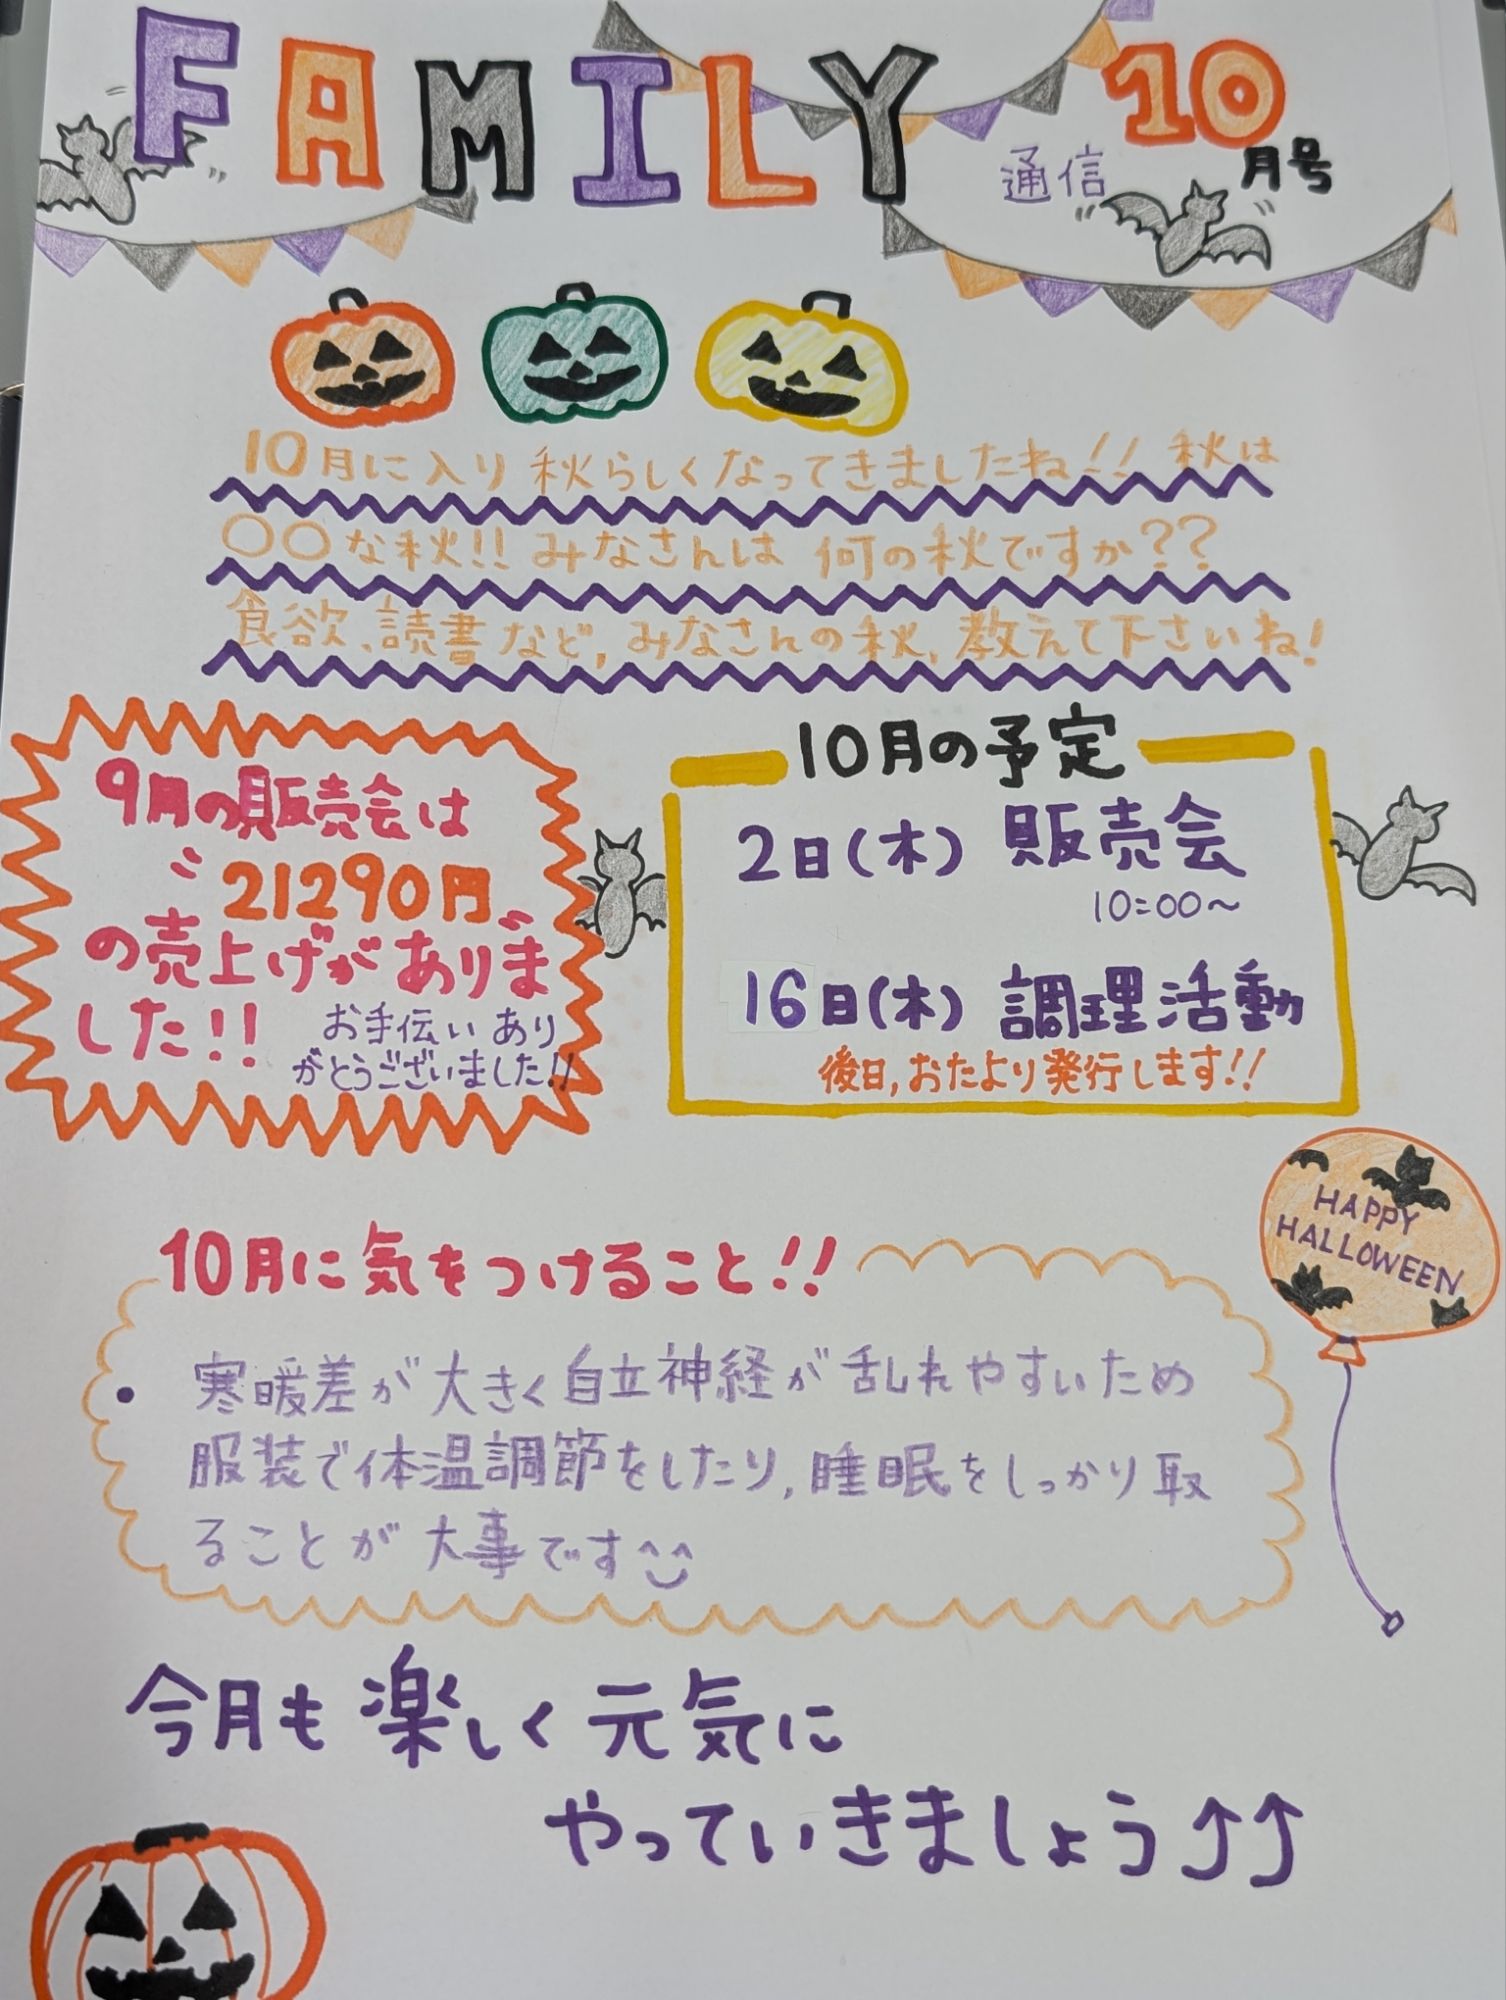 FAMILY 通信 10月号
10月に入り 秋らしくなってきましたね!! 秋は
〇〇な秋!! みなさんは 何の秋ですか??
食欲、読書など, みなさんの秋, 教えて下さいね!
9月の販売会は
21290円
の売上げがありま
した!!
お手伝い あり
がとうございました!!
10月の予定
2日(木) 販売会
10:00〜
16日(木) 調理活動
後日, おたより発行します!!
HAPPY
HALLOWEEN
10月に気をつけること!!
・ 寒暖差が大きく自立神経が乱れやすいため
服装で体温調節をしたり, 睡眠をしっかり取
ることが大事です^^
今月も 楽しく 元気に
やっていきましょう⤴⤴